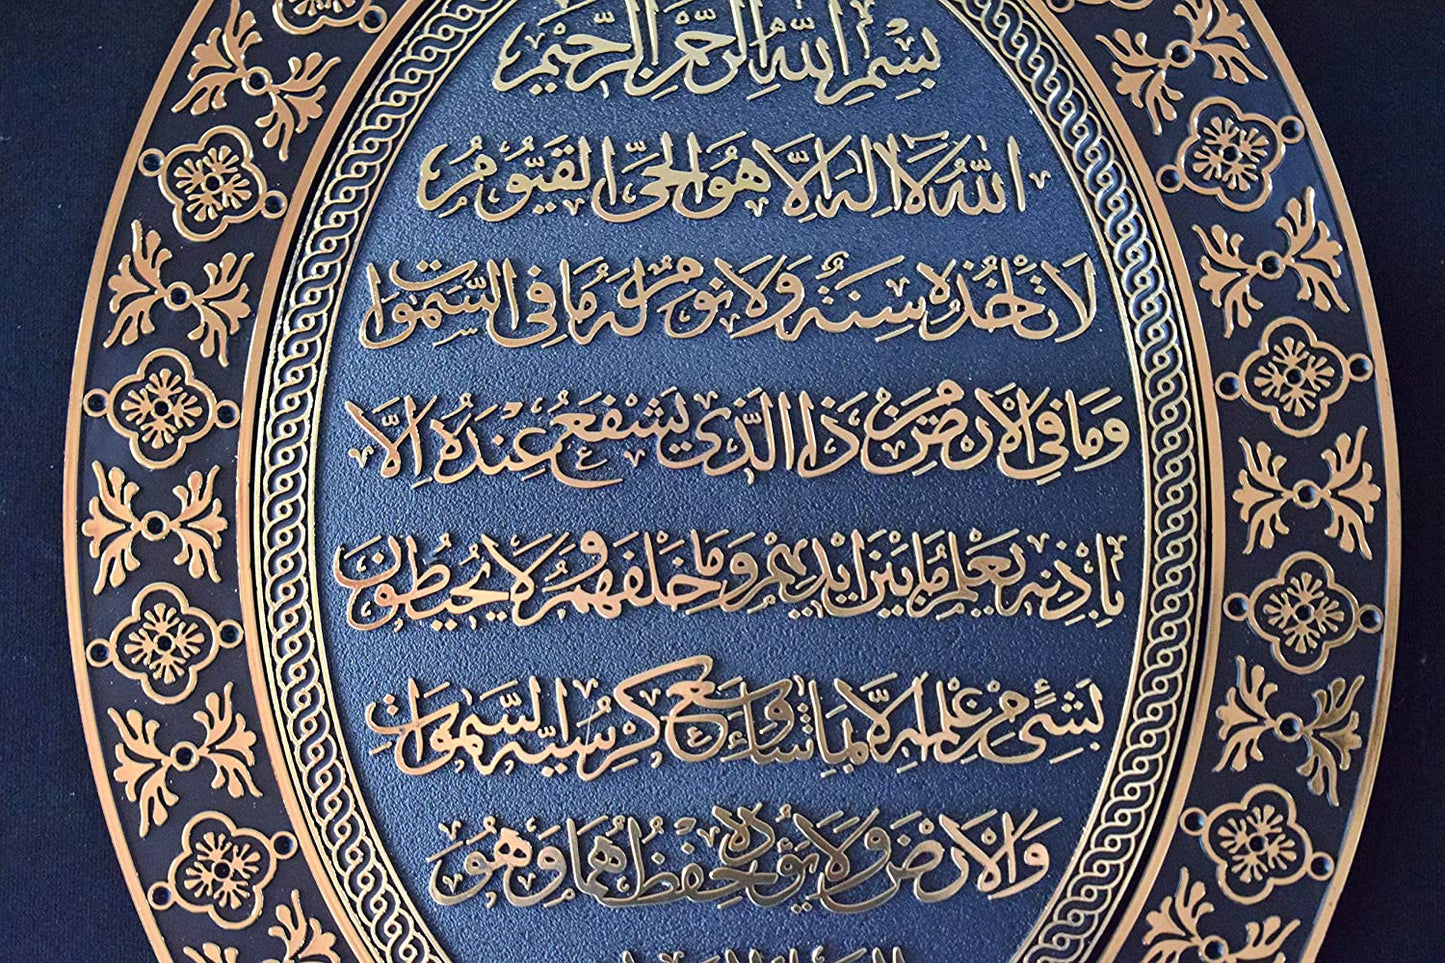 بِسْمِ اللهِ الرَّحْمٰنِ الرَّحِيمِ
اَللهُ لَا اِلٰهَ اِلَّا هُوَ الْحَىُّ الْقَيُّومُ
لَا تَأْخُذُهُ سِنَةٌ وَلَا نَوْمٌ لَهُ مَا فِى السَّمٰوَاتِ
وَمَا فِى الْاَرْضِ مَنْ ذَا الَّذِى يَشْفَعُ عِنْدَهُ اِلَّا
بِاِذْنِهِ يَعْلَمُ مَا بَيْنَ اَيْدِيهِمْ وَمَا خَلْفَهُمْ وَلَا يُحِيطُونَ
بِشَىْءٍ مِنْ عِلْمِهِ اِلَّا بِمَا شَاءَ وَسِعَ كُرْسِيُّهُ السَّمٰوَاتِ
وَالْاَرْضَ وَلَا يَؤُدُهُ حِفْظُهُمَا وَهُوَ